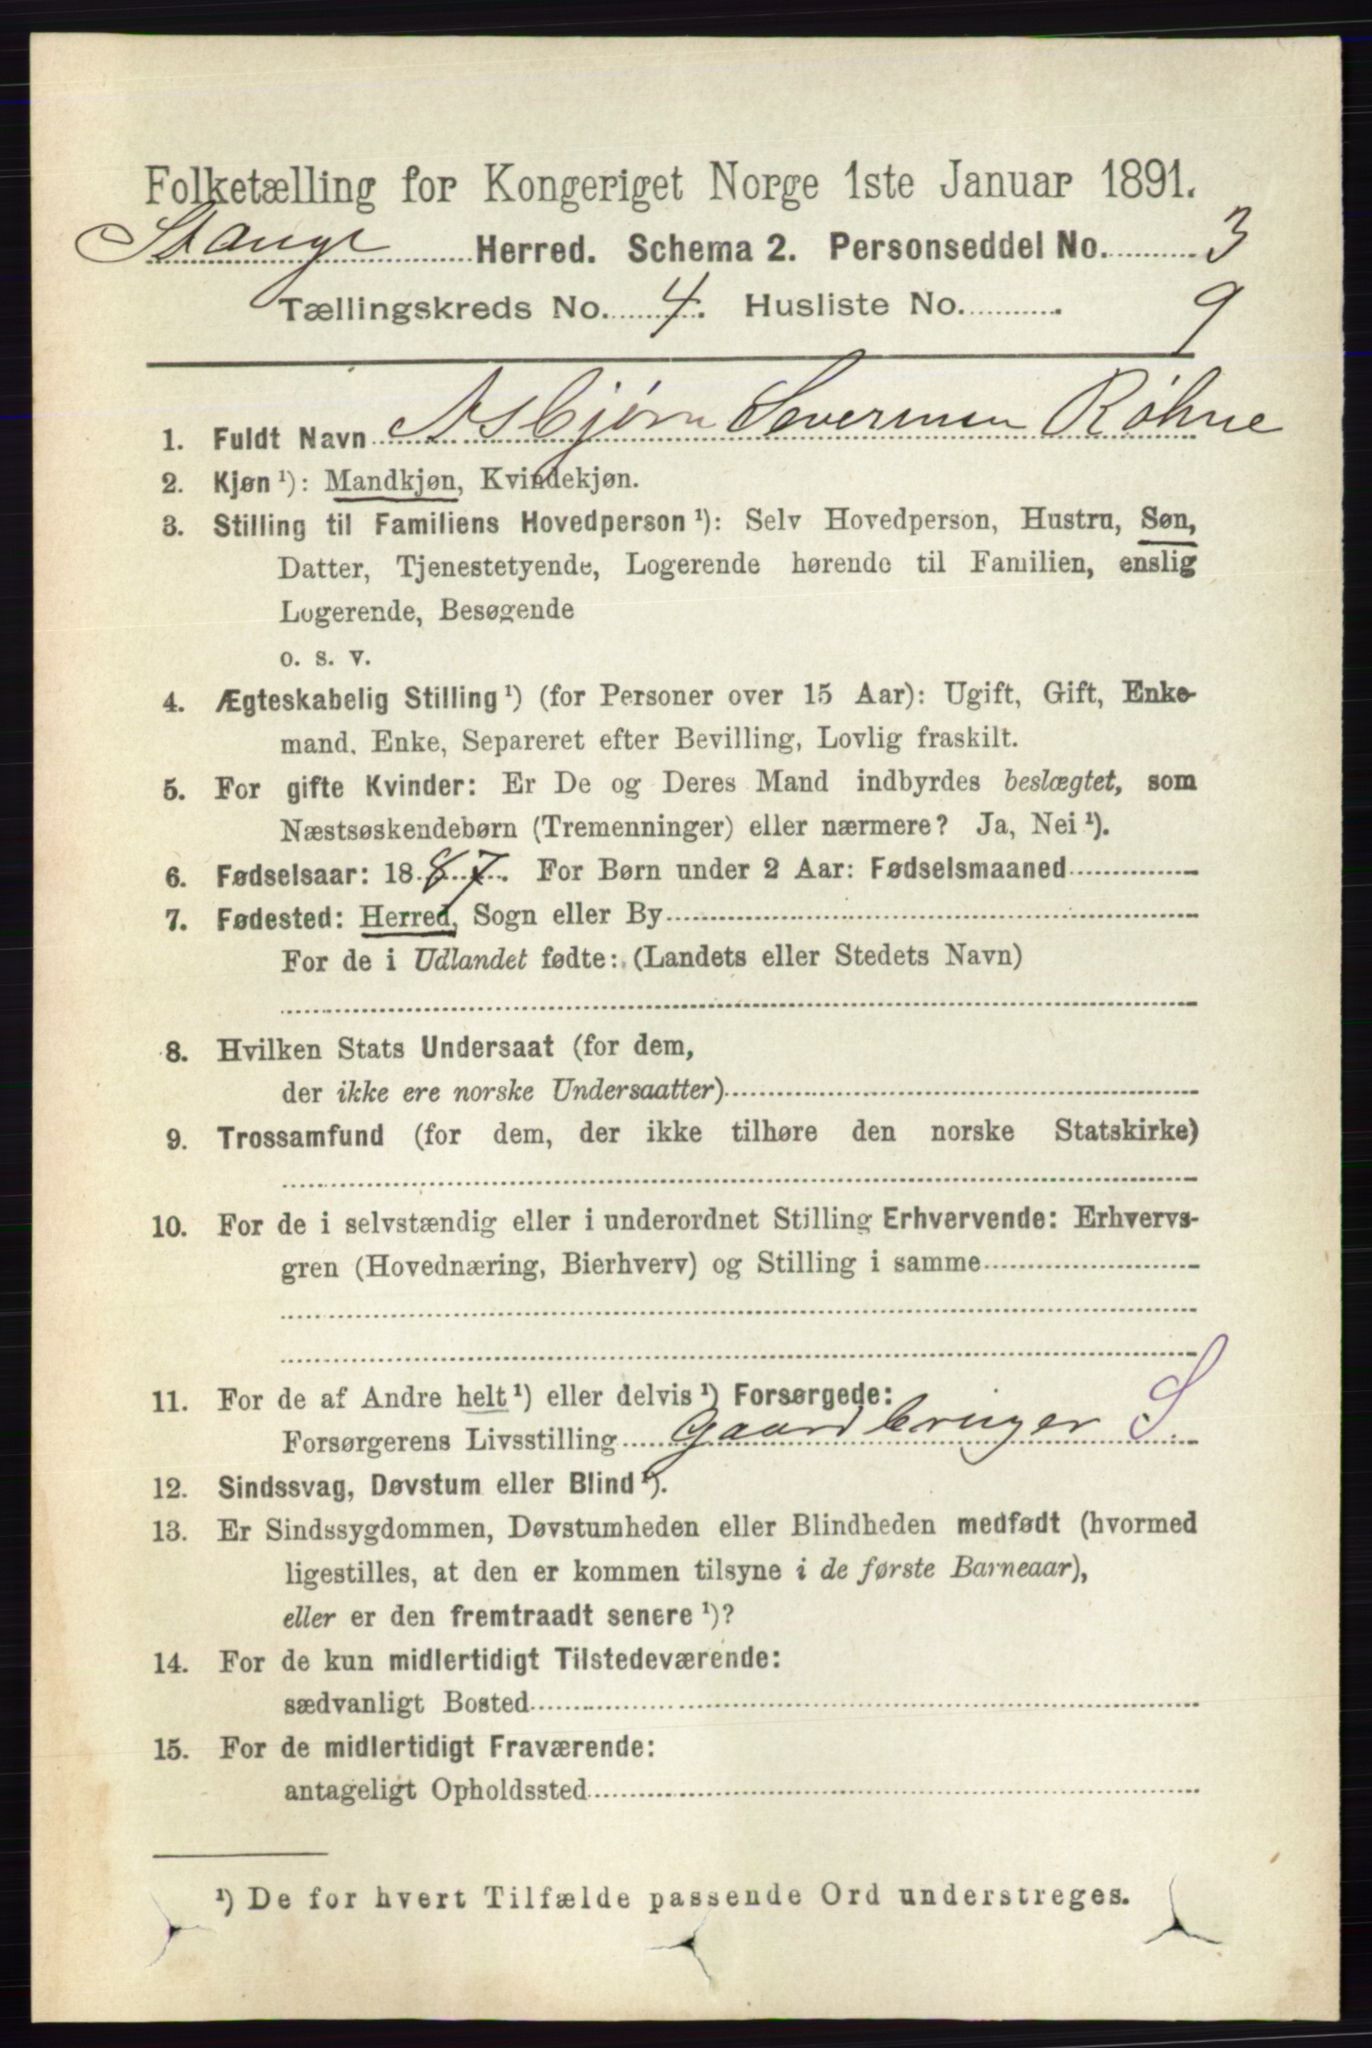 Folketælling for Kongeriget Norge 1ste Januar 1891.
Stange Herred. Schema 2. Personseddel No. 3
Tællingskreds No. 4. Husliste No. 9
1. Fuldt Navn Asbjørn Severinsen Röhne
2. Kjøn ¹): Mandkjøn, Kvindekjøn.
3. Stilling til Familiens Hovedperson ¹): Selv Hovedperson, Hustru, Søn,
Datter, Tjenestetyende, Logerende hørende til Familien, enslig
Logerende, Besøgende
o. s. v.
4. Ægteskabelig Stilling ¹) (for Personer over 15 Aar): Ugift, Gift, Enke-
mand, Enke, Separeret efter Bevilling, Lovlig fraskilt.
5. For gifte Kvinder: Er De og Deres Mand indbyrdes beslægtet, som
Næstsøskendebørn (Tremenninger) eller nærmere? Ja, Nei ¹).
6. Fødselsaar: 1887. For Børn under 2 Aar: Fødselsmaaned
7. Fødested: Herred, Sogn eller By
For de i Udlandet fødte: (Landets eller Stedets Navn)
8. Hvilken Stats Undersaat (for dem,
der ikke ere norske Undersaatter)
9. Trossamfund (for dem, der ikke tilhøre den norske Statskirke)
10. For de i selvstændig eller i underordnet Stilling Erhvervende: Erhvervs-
gren (Hovednæring, Bierhverv) og Stilling i samme
11. For de af Andre helt ¹) eller delvis ¹) Forsørgede:
Forsørgerens Livsstilling Gaardbruger S
12. Sindssvag, Døvstum eller Blind ¹).
13. Er Sindssygdommen, Døvstumheden eller Blindheden medfødt (hvormed
ligestilles, at den er kommen tilsyne i de første Barneaar),
eller er den fremtraadt senere ¹)?
14. For de kun midlertidigt Tilstedeværende:
sædvanligt Bosted
15. For de midlertidigt Fraværende:
antageligt Opholdssted
¹) De for hvert Tilfælde passende Ord understreges.